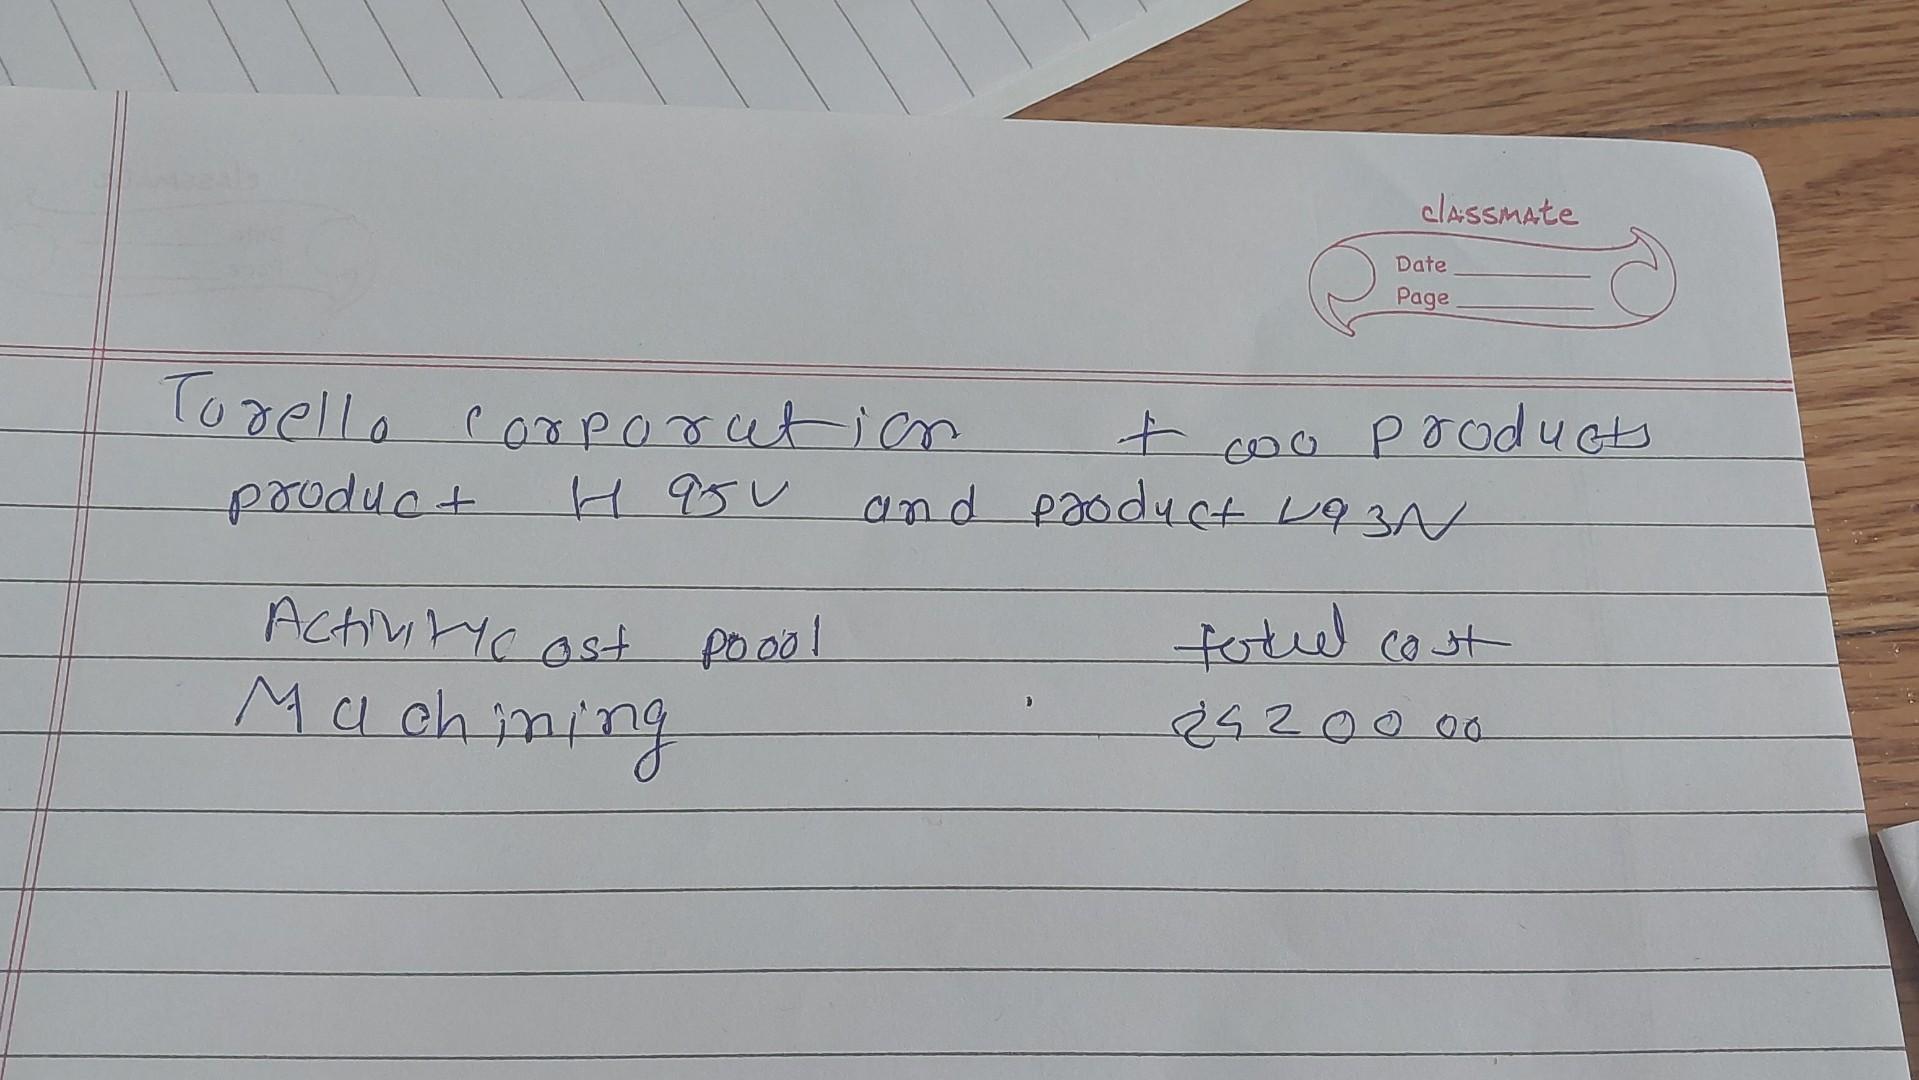 classmate
Date
Page
Torello Corporation two products
product H95V and product V93N
Activity Cost pool total cost
Machining